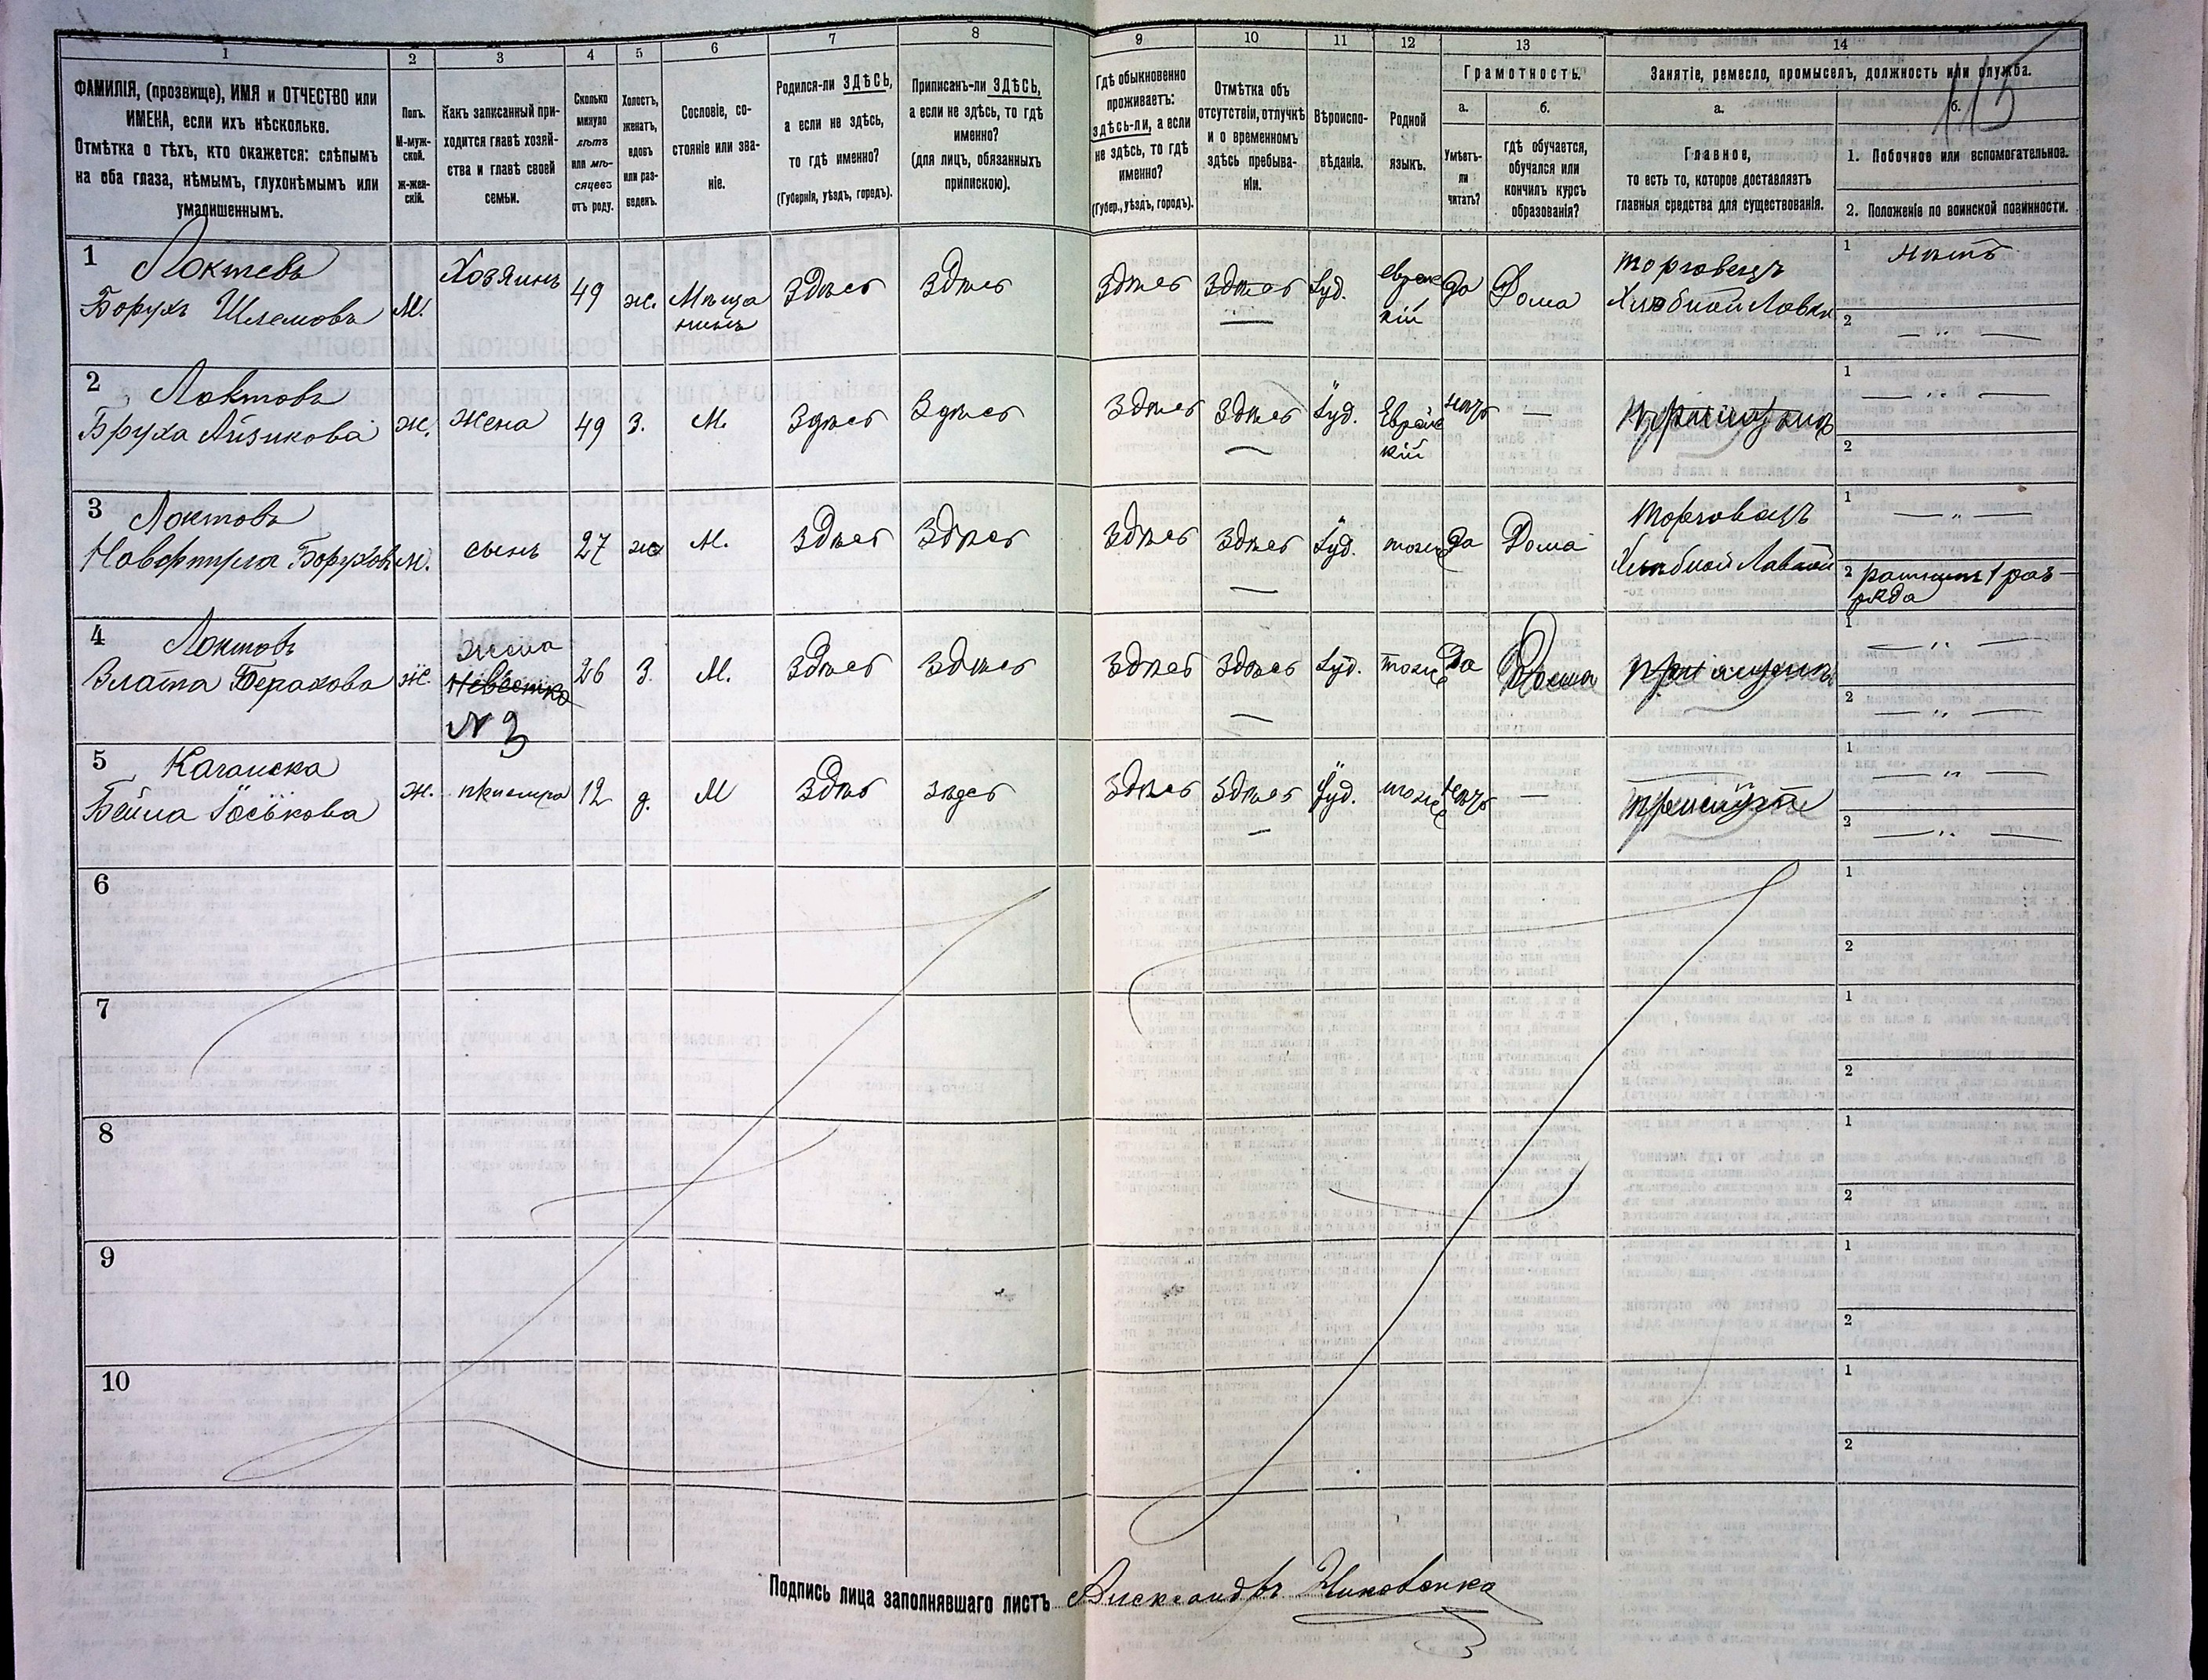 1 2 3 4 5 6 7 8 9 10 11 12 13 14
115
ФАМИЛІЯ, (прозвище), ИМЯ и ОТЧЕСТВО или
ИМЕНА, если ихъ нѣсколько.
Отмѣтка о тѣхъ, кто окажется: слѣпымъ
на оба глаза, нѣмымъ, глухонѣмымъ или
умалишеннымъ.
Полъ.
М-муж-
ской.
Ж-жен-
скій.
Какъ записанный при-
ходится главѣ хозяй-
ства и главѣ своей
семьи.
Сколько
минуло
лѣтъ
или мѣ-
сяцевъ
отъ роду.
Холостъ,
женатъ,
вдовъ
или раз-
веденъ.
Сословіе, со-
стояніе или зва-
ніе.
Родился-ли ЗДѢСЬ,
а если не здѣсь,
то гдѣ именно?
(Губернія, уѣздъ, городъ).
Приписанъ-ли ЗДѢСЬ,
а если не здѣсь, то гдѣ
именно?
(для лицъ, обязанныхъ
припискою).
Гдѣ обыкновенно
проживаетъ:
здѣсь-ли, а если
не здѣсь, то гдѣ
именно?
(Губер., уѣздъ, городъ).
Отмѣтка объ
отсутствіи, отлучкѣ
и о временномъ
здѣсь пребыва-
ніи.
Вѣроиспо-
вѣданіе.
Родной
языкъ.
Грамотность.
а.
Умѣетъ-
ли
читать?
б.
гдѣ обучается,
обучался или
кончилъ курсъ
образованія?
Занятіе, ремесло, промыселъ, должность или служба.
а.
Главное,
то есть то, которое доставляетъ
главныя средства для существованія.
б.
1. Побочное или вспомогательное.
2. Положеніе по воинской повинности.
1 Локтевъ М. Хозяинъ 49 ж. Мѣща здѣсь здѣсь здѣсь здѣсь Іуд. еврейс да Дома торговецъ 1 нѣтъ
Борухъ Шлемовъ нинъ — кій Хлѣбной Лавки 2 — „ —
2 Локтовъ ж. жена 49 З. М. Здѣсь Здѣсь Здѣсь Здѣсь Іуд. Еврейс нѣтъ — 1 — „ —
Бруха Айзикова — кій 2
3 Локтовъ м. сынъ 27 ж М. Здѣсь Здѣсь Здѣсь Здѣсь Іуд. тоже да Дома торговецъ 1 — „ —
Борухов — Хлѣбной Лавкой 2 ратникъ 1 раз-
ряда
4 Локтовъ ж. жена 26 З. М. Здѣсь Здѣсь Здѣсь Здѣсь Іуд. тоже да Дома 1 — „ —
Злата Беркова Невѣстка — 2 — „ —
N 3
5 Каганска ж. 12 д. М Здѣсь здѣсь Здѣсь Здѣсь Іуд. тоже нѣтъ — 1 — „ —
Бейла Іоськова — 2 — „ —
6 1
2
7 1
2
8 1
2
9 1
2
10 1
2
Подпись лица заполнявшаго листъ Александръ